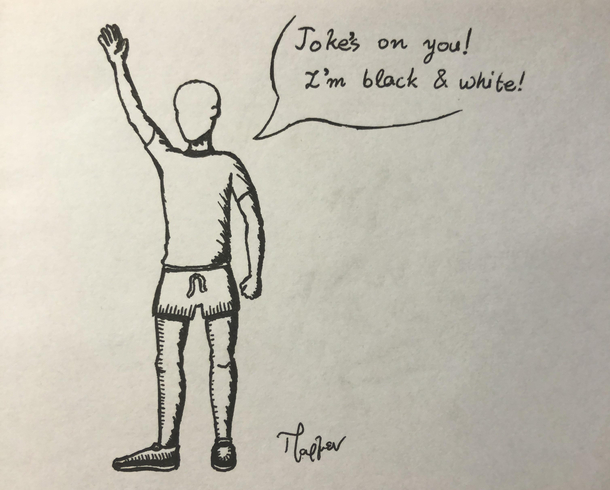 Joke's on you!
I'm black & white!